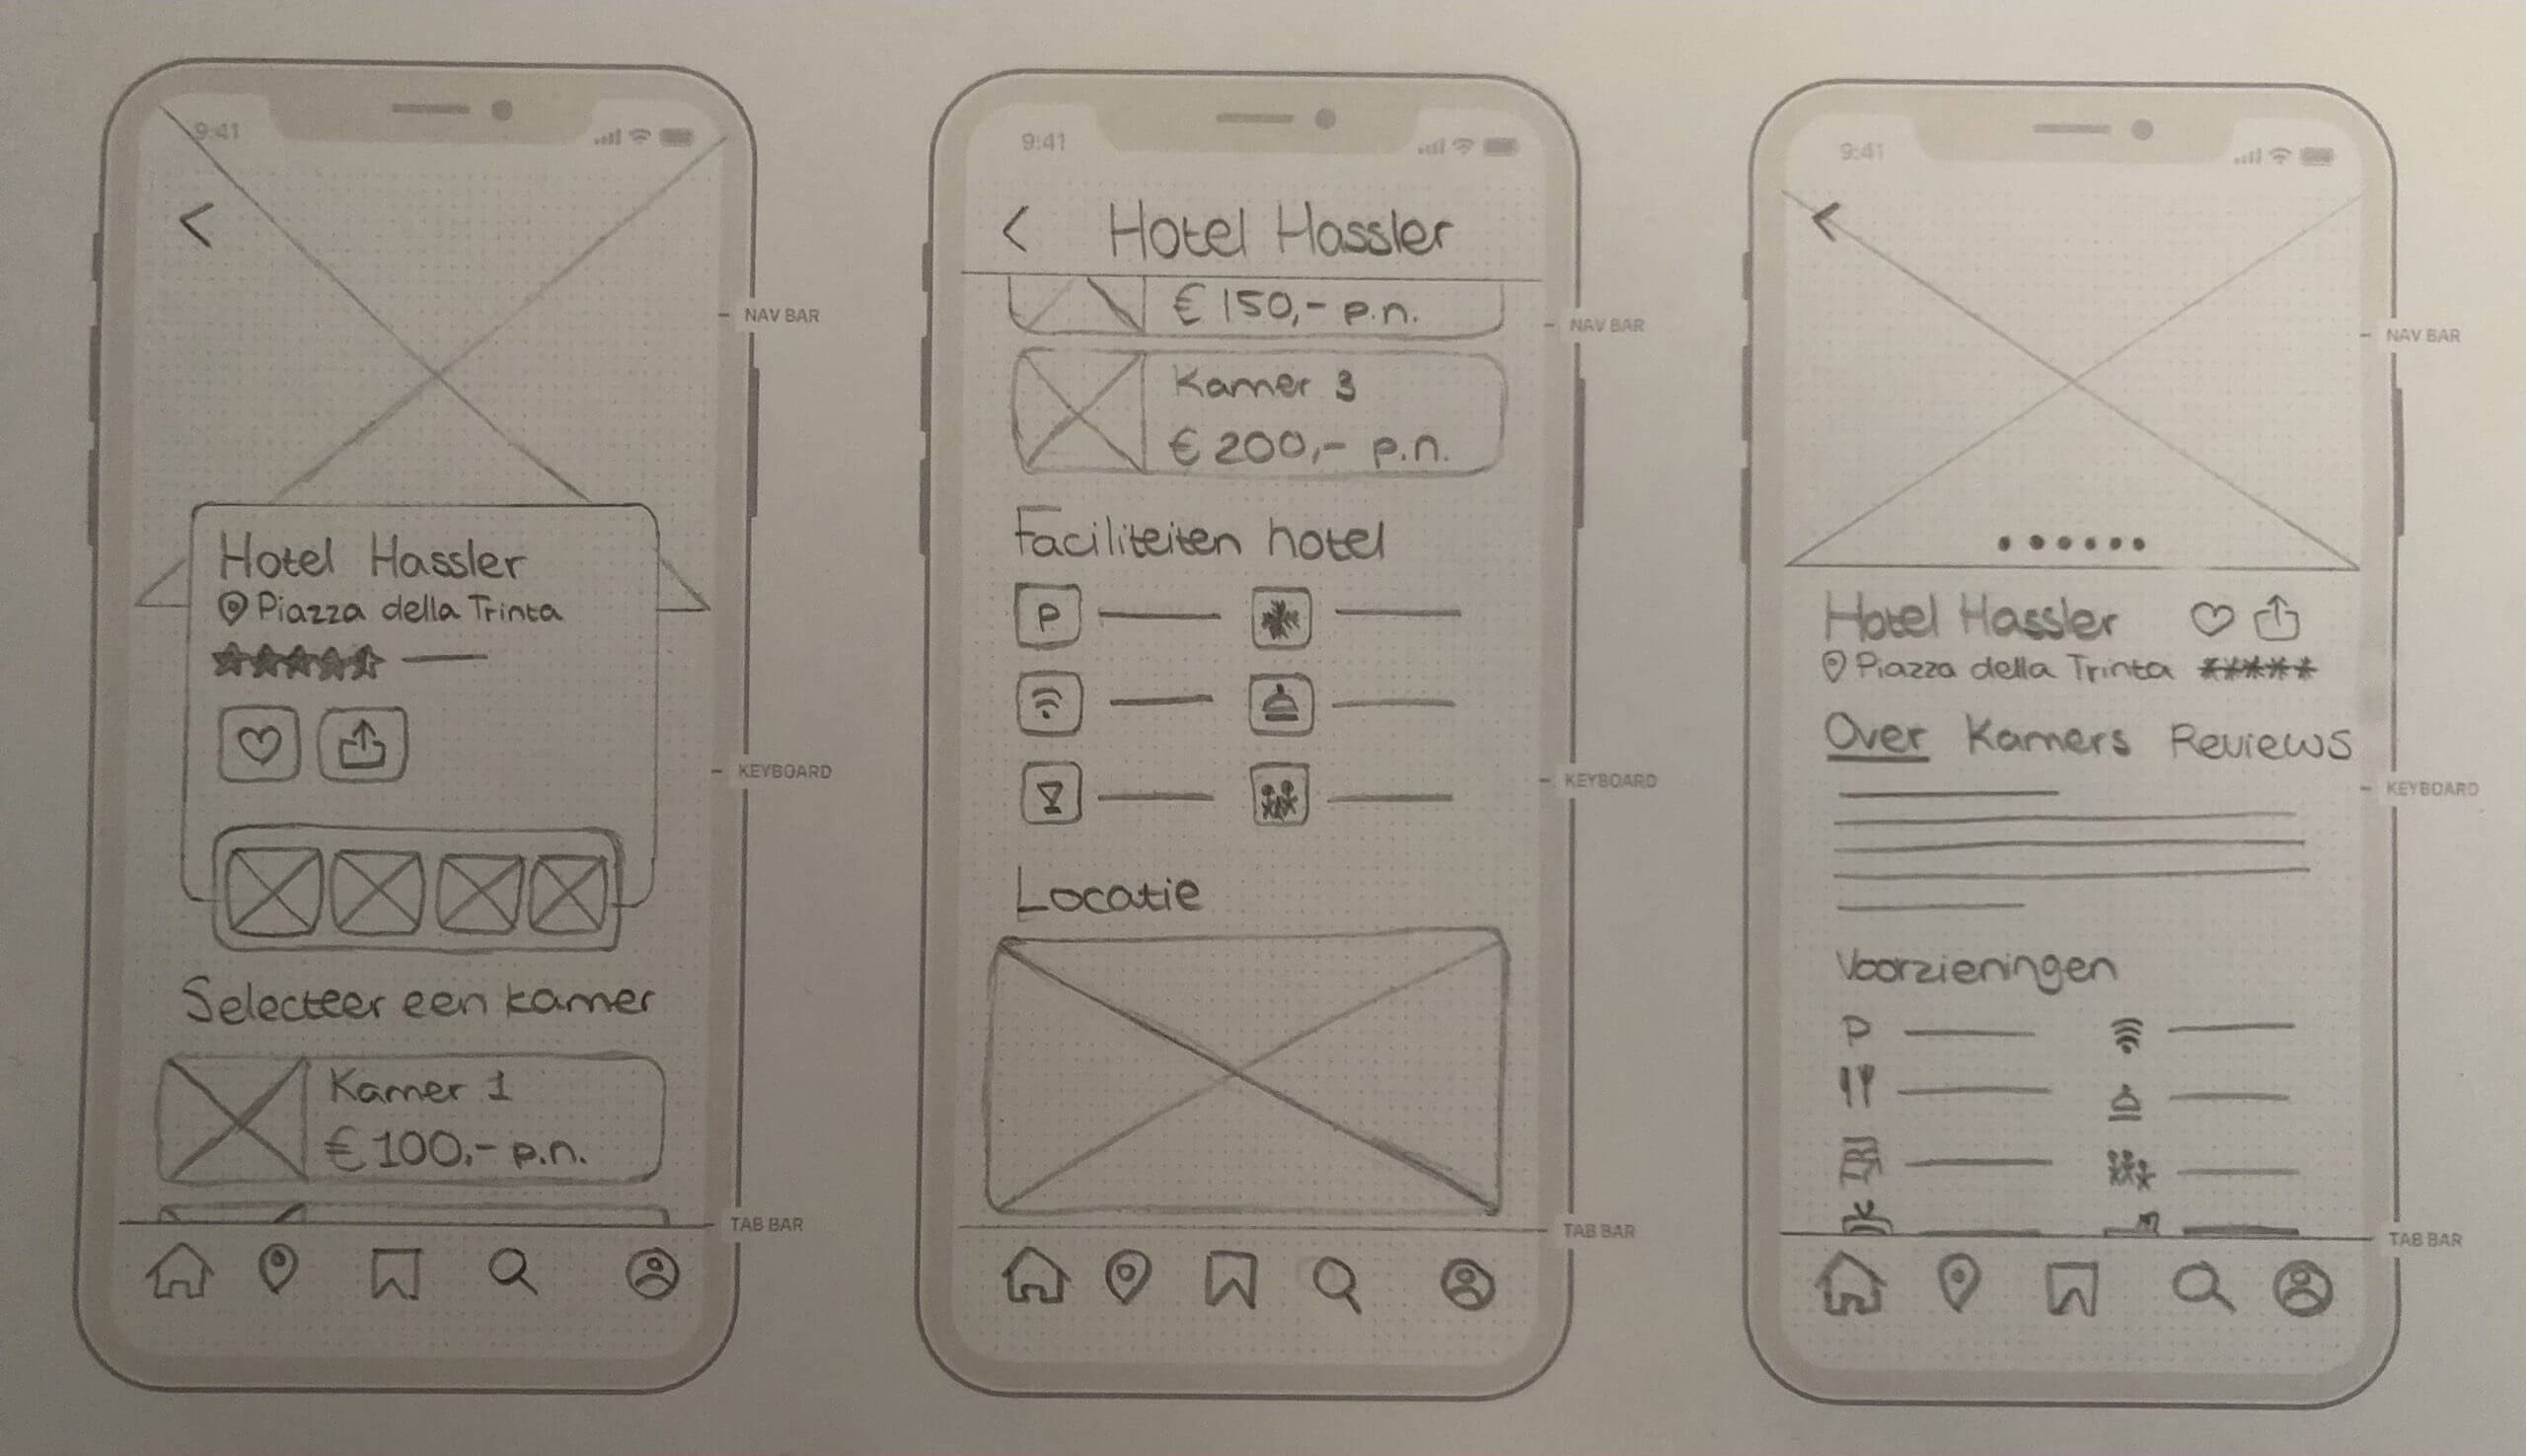 9:41
<
NAV BAR
Hotel Hassler
Piazza della Trinta
KEYBOARD
Selecteer een kamer
Kamer 1
€ 100,- p.n.
TAB BAR
9:41
< Hotel Hassler
€ 150,- p.n.
NAV BAR
Kamer 3
€ 200,- p.n.
Faciliteiten hotel
P
KEYBOARD
Locatie
TAB BAR
9:41
<
NAV BAR
Hotel Hassler
Piazza della Trinta
Over Kamers Reviews
KEYBOARD
Voorzieningen
P
TAB BAR